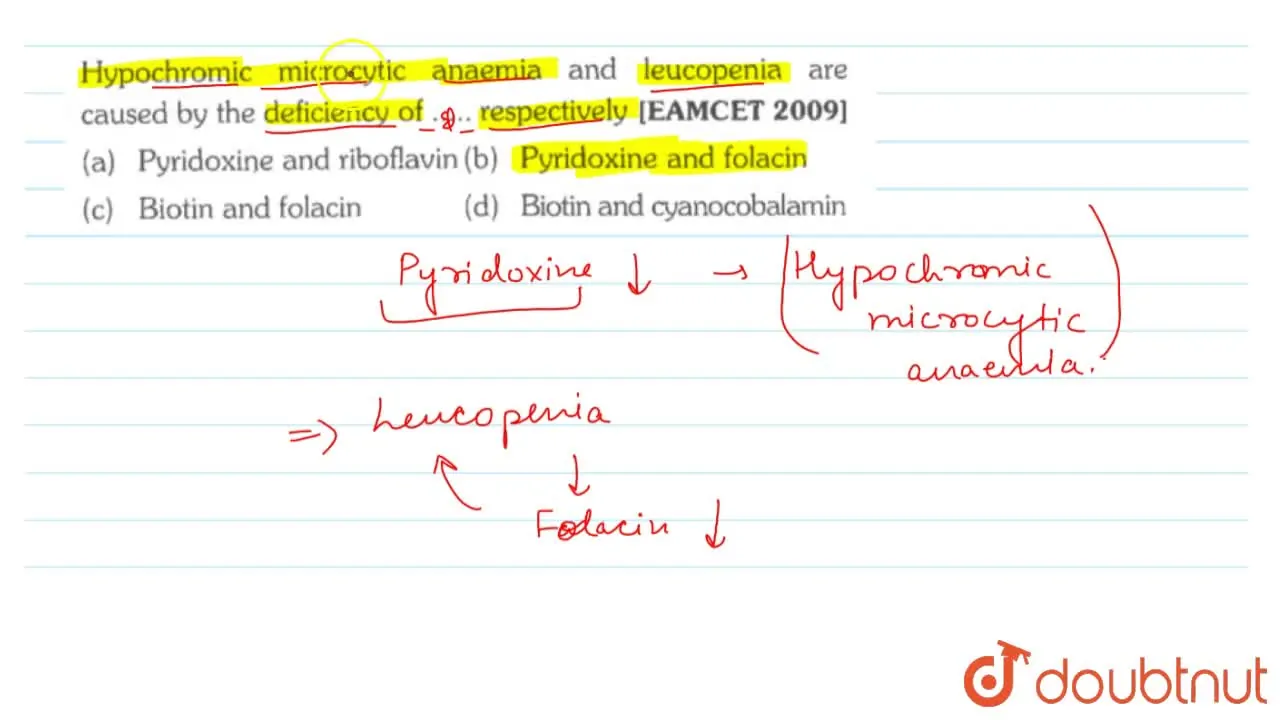 Hypochromic microcytic anaemia and leucopenia are
caused by the deficiency of ..... respectively [EAMCET 2009]
(a) Pyridoxine and riboflavin (b) Pyridoxine and folacin
(c) Biotin and folacin (d) Biotin and cyanocobalamin
Pyridoxine ↓ → (Hypochromic
microcytic
anaemia.)
⇒ Leucopenia
↓
Folacin ↓
doubtnut